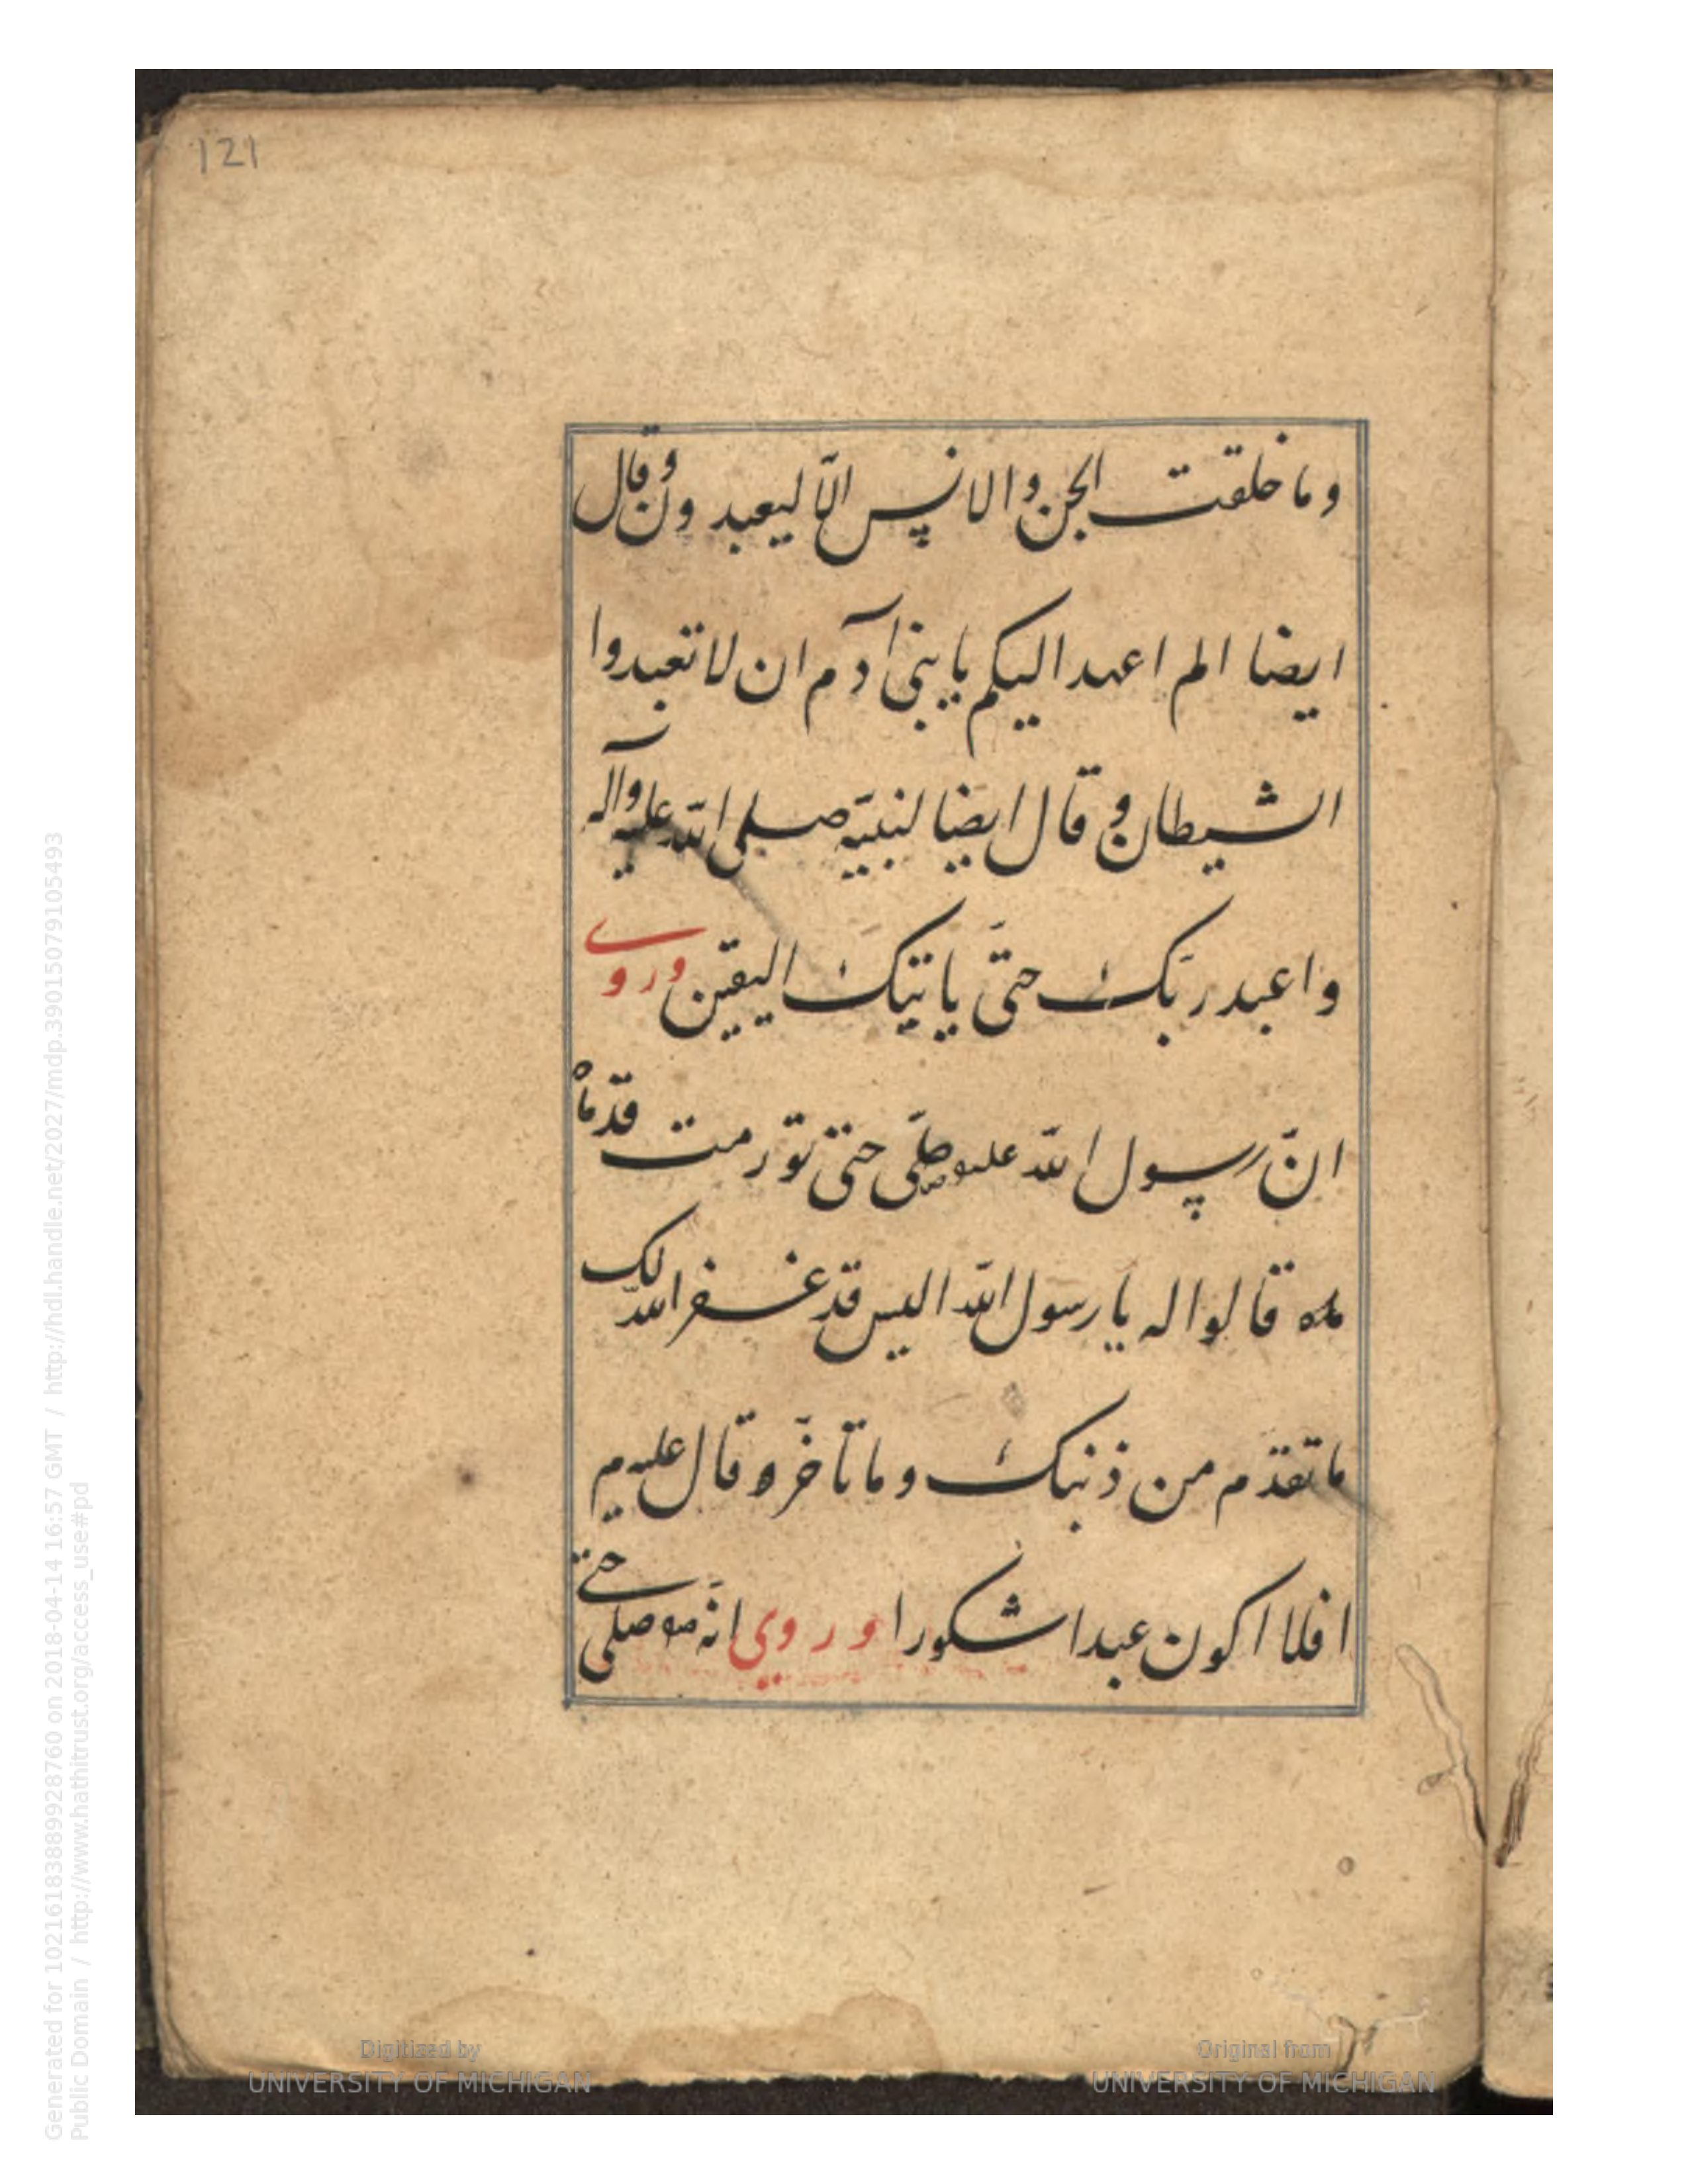 121
وما خلقت الجن والانس الّا ليعبدون وقال
ايضا الم اعهد اليكم يا بنى آدم ان لا تعبدوا
الشيطان وقال ايضا لنبيّه صلى الله عليه وآله
واعبد ربّك حتىّ ياتيك اليقين وروى
انّ رسول الله عليه صلّى حتى تورمت قدّماْ
قالوا له يا رسول الله اليس قد غفر الله لك
ما تقدّم من ذنبك وما تاخّر قال عليه م
افلا اكون عبدا شكورا وروي انّه صلى حتى
Digitized by
UNIVERSITY OF MICHIGAN
Original from
UNIVERSITY OF MICHIGAN
Generated for 10216183889928760 on 2018-04-14 16:57 GMT / http://hdl.handle.net/2027/mdp.39015079105493
Public Domain / http://www.hathitrust.org/access_use#pd